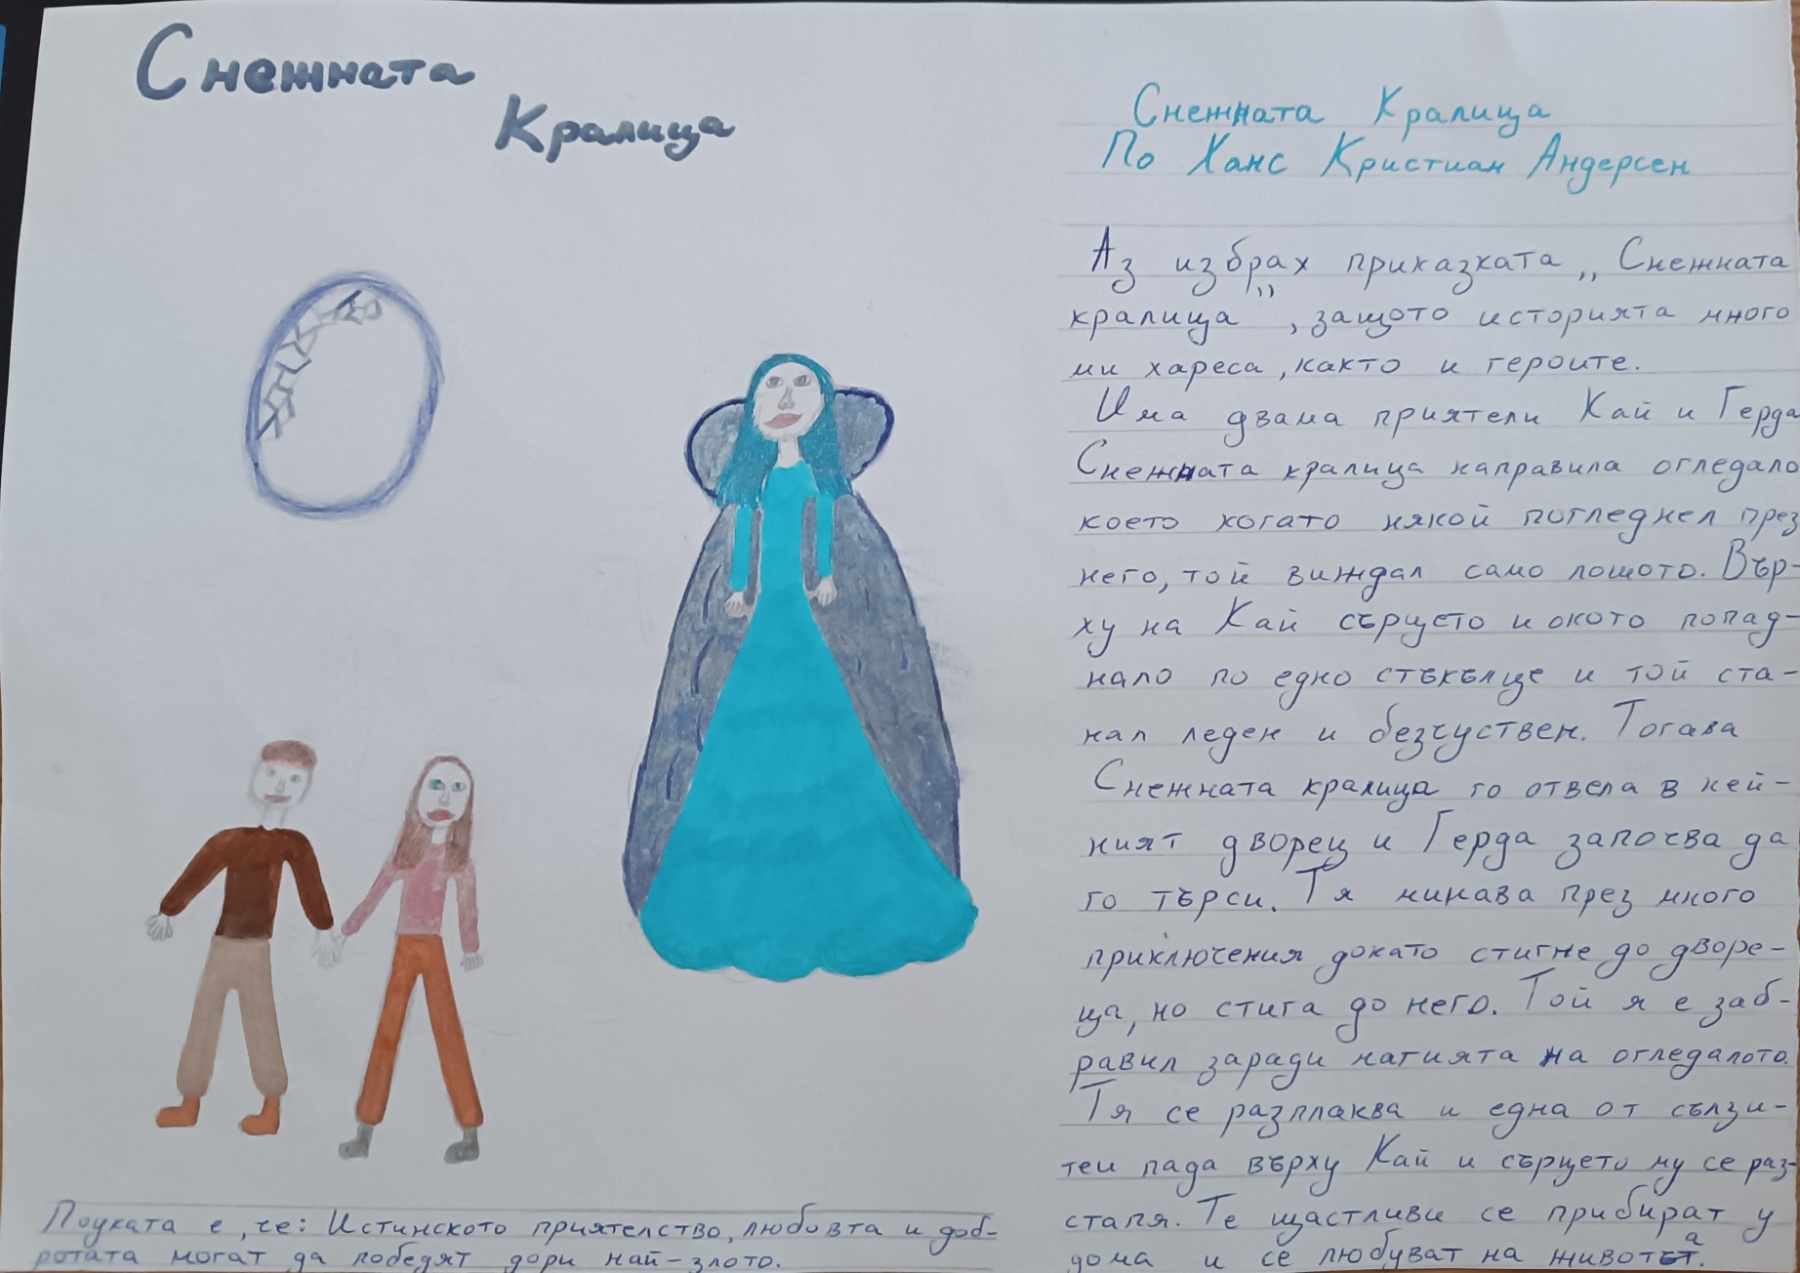 Снежната
Кралица
Снежната Кралица
По Ханс Кристиан Андерсен
Аз избрах приказката ,, Снежната
кралица", защото историята много
ми хареса, както и героите.
Има двама приятели Кай и Герда
Снежната кралица направила огледало
което когато някой погледнел през
него, той виждал само лошото. Вър-
ху на Кай сърцето и окото попад-
нало по едно стъкълце и той ста-
нал леден и безчуствен. Тогава
Снежната кралица го отвела в ней-
ният дворец и Герда започва да
го търси. Тя минава през много
приключения докато стигне до дворе-
ца, но стига до него. Той я е заб-
равил заради магията на огледалото.
Тя се разплаква и една от сълзи-
теи пада върху Кай и сърцето му се раз-
стапя. Те щастливи се прибират у
дома и се любуват на живота.
Поуката е, че: Истинското приятелство, любовта и доб-
ротата могат да победят дори най-злото.